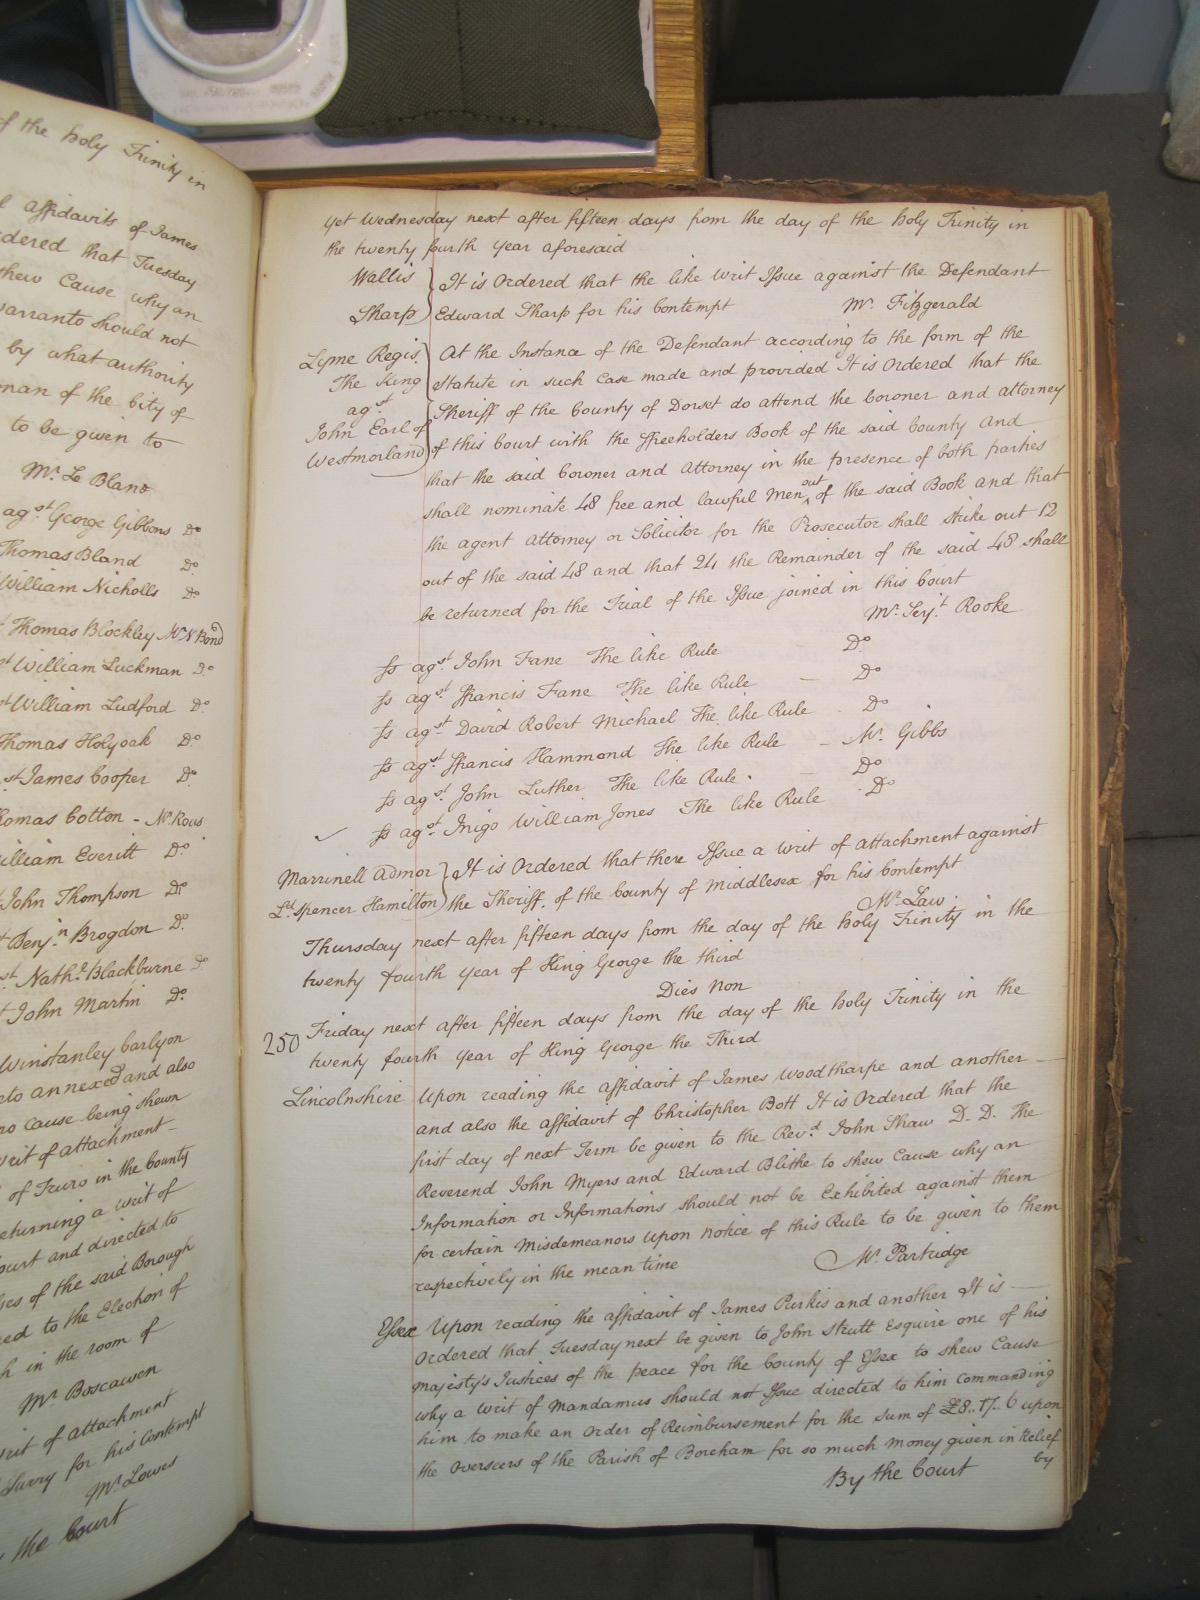 of the holy Trinity in
affidavits of James
dered that Tuesday
shew Cause why an
warranto should not
by what authority
man of the City of
to be given to
Mr. Le Blanc
agst. George Gibbons Do
Thomas Bland Do
William Nicholls Do
Thomas Blockley Mr. N Bond
st William Luckman Do
st William Ludford Do
Thomas Holyoak Do
st James Cooper Do
Thomas Cotton - Mr. Rous
William Everitt Do
John Thompson Do
Benjn. Brogdon Do
st Nathl. Blackburne Do
John Martin Do
Winstanley Carlyon
to annexed and also
no cause being shewn
writ of attachment
of Truro in the County
returning a writ of
Court and directed to
ses of the said Borough
ed to the Election of
h in the room of
Mr. Boscawen
writ of attachment
Surry for his Contempt
Mr. Lowes
the Court
Yet Wednesday next after fifteen days from the day of the holy Trinity in
the twenty fourth year aforesaid
Wallis } It is Ordered that the like writ Issue against the Defendant
Sharp } Edward Sharp for his Contempt Mr. Fitzgerald
Lyme Regis } At the Instance of the Defendant according to the form of the
The King Statute in such Case made and provided It is Ordered that the
agst. Sheriff of the County of Dorset do attend the Coroner and attorney
John Earl of of this Court with the ffreeholders Book of the said County and
Westmorland that the said Coroner and Attorney in the presence of both parties
shall nominate 48 free and lawful men out of the said Book and that
the agent Attorney or Solicitor for the Prosecutor shall strike out 12
out of the said 48 and that 24 the Remainder of the said 48 shall
be returned for the Trial of the Issue joined in this Court
Mr. Serjt. Rooke
Ss agst. John Fane The like Rule - Do
Ss agst. ffrancis Fane The like Rule - Do
Ss agst. David Robert Michael The like Rule Do
Ss agst. ffrancis Hammond The like Rule - Mr. Gibbs
Ss agst. John Luther The like Rule. - Do
Ss agst. Inigo William Jones The like Rule Do
Marrinell Admor } It is Ordered that there Issue a writ of attachment against
Ld. Spencer Hamilton } the Sheriff of the County of Middlesex for his Contempt
Mr. Law
Thursday next after fifteen days from the day of the holy Trinity in the
twenty fourth year of King George the third
Dies Non
250 Friday next after fifteen days from the day of the holy Trinity in the
twenty fourth year of King George the Third
Lincolnshire Upon reading the affidavit of James Woodtharpe and another
and also the affidavit of Christopher Bott It is Ordered that the
first day of next Term be given to the Revd. John Shaw D. D. The
Reverend John Myers and Edward Blithe to shew Cause why an
Information or Informations should not be Exhibited against them
for certain Misdemeanors upon notice of this Rule to be given to them
respectively in the mean time Mr. Partridge
Essex Upon reading the affidavit of James Purkis and another It is
Ordered that Tuesday next be given to John Strutt Esquire one of his
majesty's Justices of the peace for the County of Essex to shew Cause
why a writ of Mandamus should not Issue directed to him commanding
him to make an Order of Reimbursement for the sum of £8..17..6 upon
the Overseers of the Parish of Boreham for so much money given in Relief
By the Court by